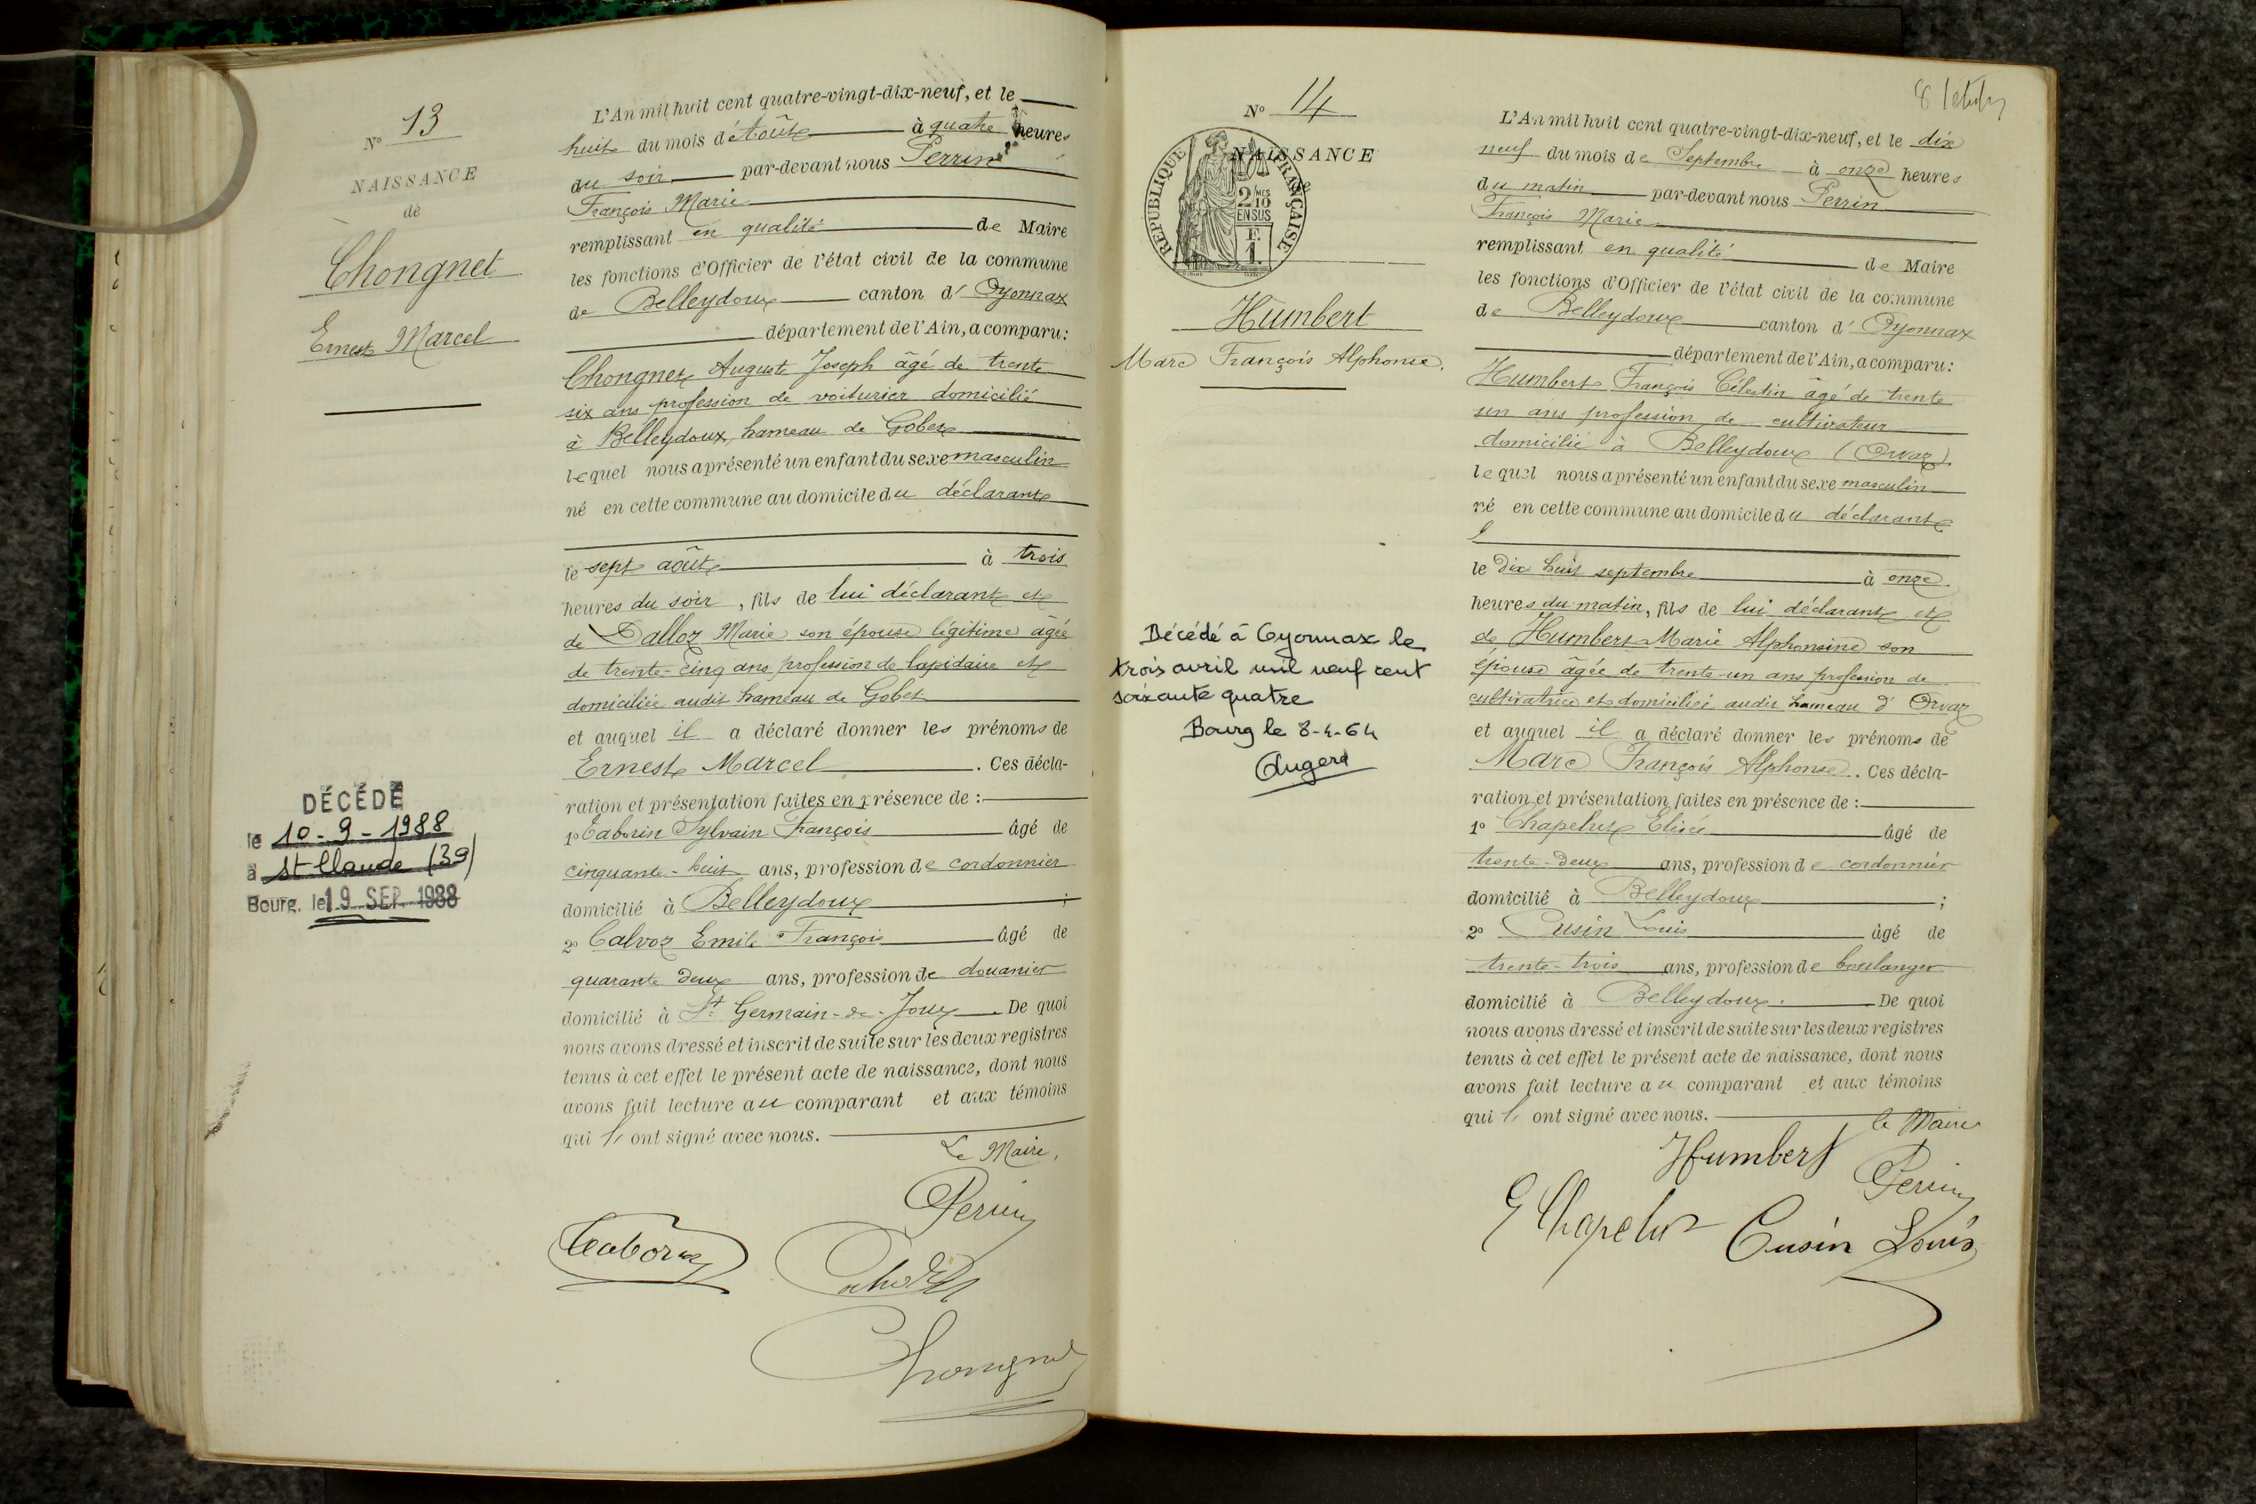 N° 13
NAISSANCE
de
Chongnet
Ernest Marcel
DÉCÉDÉ
le 10-9-1988
à St Claude (39)
Bourg, le 19 SEP. 1988
L'An mil huit cent quatre-vingt-dix-neuf, et le
huit du mois d'Août à quatre heures
du soir par-devant nous Perrin
François Marie
remplissant en qualité de Maire
les fonctions d'Officier de l'état civil de la commune
de Belleydoux canton d' Oyonnax
département de l'Ain, a comparu:
Chongnet August Joseph âgé de trente
six ans profession de voiturier domicilié
à Belleydoux, hameau de Gobet
lequel nous a présenté un enfant du sexe masculin
né en cette commune au domicile du déclarant
le sept août à trois
heures du soir, fils de lui déclarant et
de Dalloz Marie son épouse légitime âgée
de trente-cinq ans profession de lapidaire et
domiciliée audit hameau de Gobet
et auquel il a déclaré donner les prénoms de
Ernest Marcel. Ces décla-
ration et présentation faites en présence de :
1° Taborin Sylvain François âgé de
cinquante-huit ans, profession de cordonnier
domicilié à Belleydoux ;
2° Calvoz Emile François âgé de
quarante deux ans, profession de douanier
domicilié à St Germain-de-Joux De quoi
nous avons dressé et inscrit de suite sur les deux registres
tenus à cet effet le présent acte de naissance, dont nous
avons fait lecture au comparant et aux témoins
qui ont signé avec nous.
Le Maire,
Perrin
Taborin
Chongnet
N° 14
NAISSANCE
RÉPUBLIQUE FRANÇAISE
2/10 MES
EN SUS
E.
1.
Humbert
Marc François Alphonse.
Décédé à Oyonnax le
trois avril mil neuf cent
soixante quatre
Bourg le 8-4-64
Augerd
L'An mil huit cent quatre-vingt-dix-neuf, et le dix
neuf du mois de Septembre à onze heures
du matin par-devant nous Perrin
François Marie
remplissant en qualité de Maire
les fonctions d'Officier de l'état civil de la commune
de Belleydoux canton d' Oyonnax
département de l'Ain, a comparu:
Humbert François Célestin âgé de trente
un ans profession de cultivateur
domicilié à Belleydoux (Orvaz)
lequel nous a présenté un enfant du sexe masculin
né en cette commune au domicile du déclarant
le dix huit septembre à onze
heures du matin, fils de lui déclarant et
de Humbert Marie Alphonsine son
épouse âgée de trente-un ans profession de
cultivatrice et domiciliée audit hameau d' Orvaz
et auquel il a déclaré donner les prénoms de
Marc François Alphonse. Ces décla-
ration et présentation faites en présence de :
1° Chapelut Elisée âgé de
trente-deux ans, profession de cordonnier
domicilié à Belleydoux ;
2° Cusin Louis âgé de
trente-trois ans, profession de boulanger
domicilié à Belleydoux. De quoi
nous avons dressé et inscrit de suite sur les deux registres
tenus à cet effet le présent acte de naissance, dont nous
avons fait lecture au comparant et aux témoins
qui ont signé avec nous.
le Maire
Humbert Perrin
E Chapelut Cusin Louis